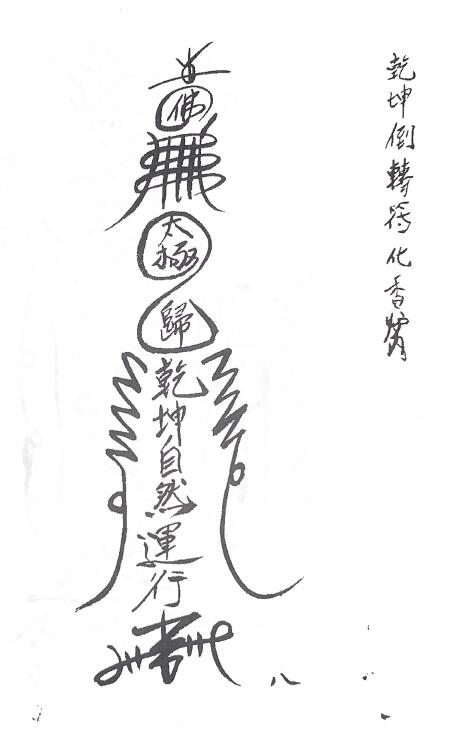 乾坤倒轉符化香
佛
太極
歸
乾坤自然運行
八